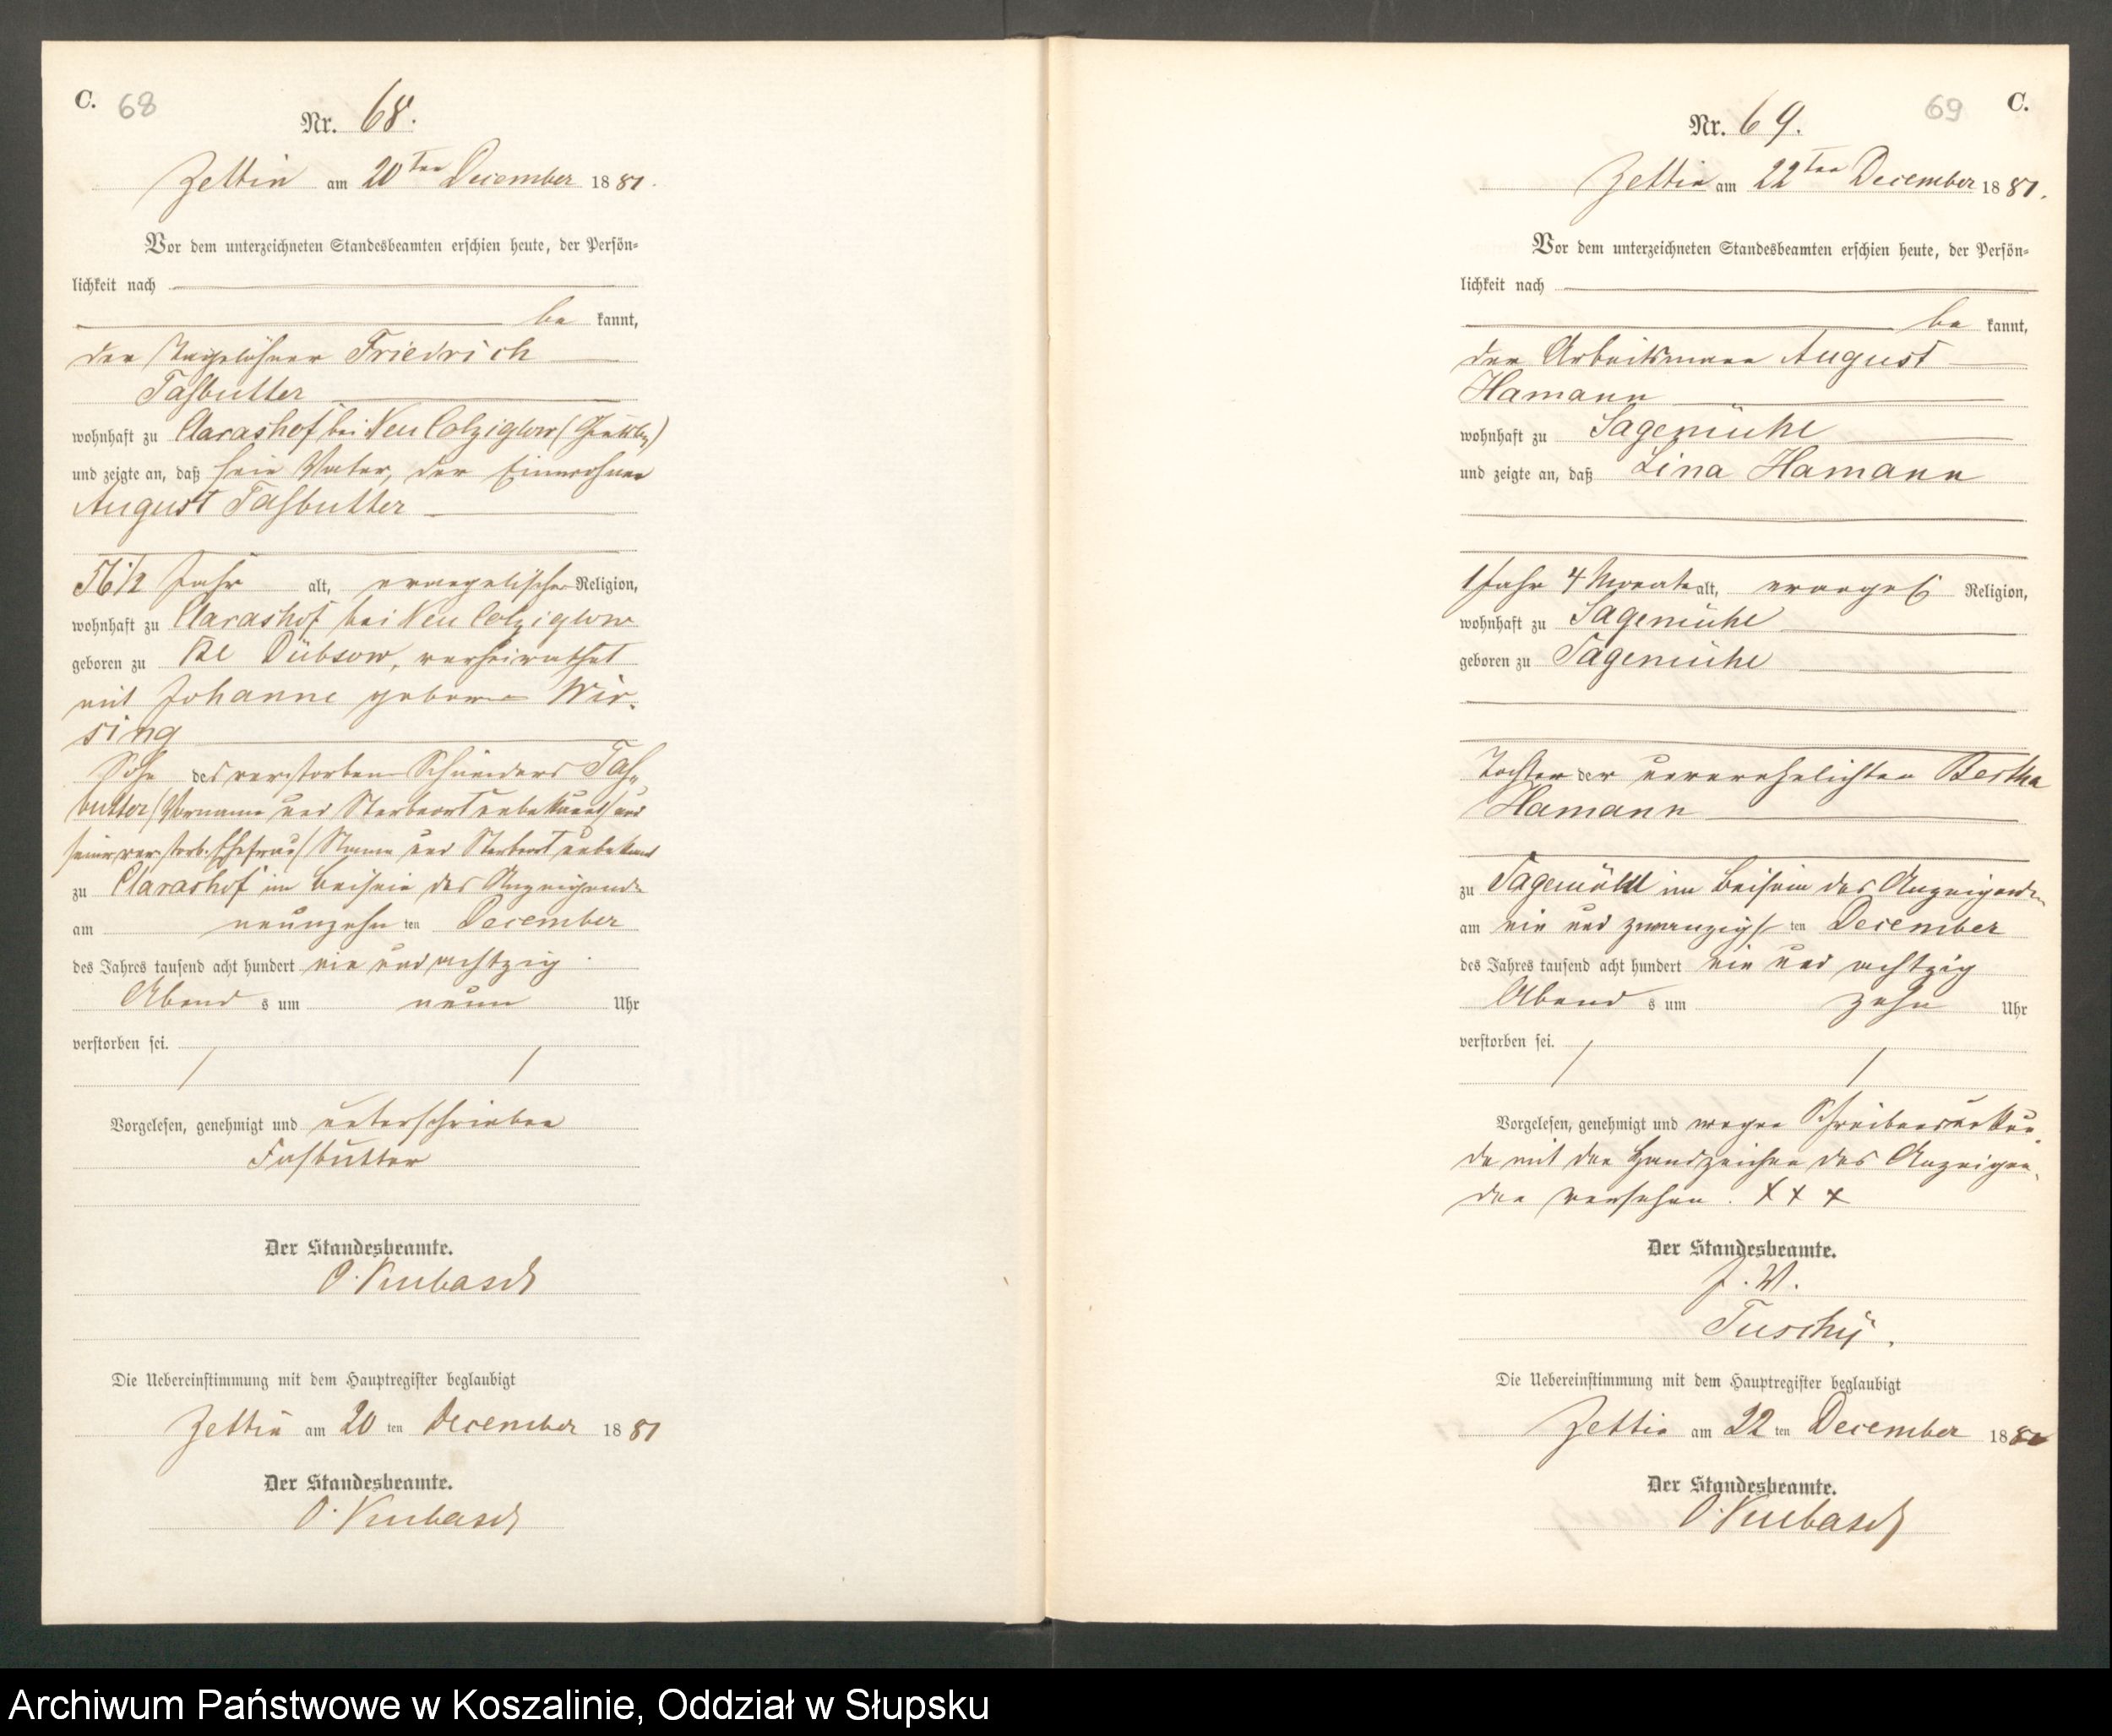 C. 68
Nr. 68.
Zettin am 20ten December 1881.
Vor dem unterzeichneten Standesbeamten erschien heute, der Persön-
lichkeit nach
be kannt,
der Tagelöhner Friedrich
Fasbutter
wohnhaft zu Clarashof bei Neu Colziglow
und zeigte an, daß sein Vater, der Einwohner
August Fasbutter
56 1/2 Jahr alt, evangelischer Religion,
wohnhaft zu Clarashof bei Neu Colziglow
geboren zu Kl Dübsow, verheirathet
mit Johanne geborene Wir-
sing
Sohn des verstorbenen Schneiders Fas-
butter (Vorname und Sterbeort unbekannt) und
seiner verstorb. Ehefrau (Name und Sterbeort unbekannt
zu Clarashof im Beisein des Anzeigenden
am neunzehn ten December
des Jahres tausend acht hundert ein und achtzig
Abend s um neun Uhr
verstorben sei.
Vorgelesen, genehmigt und unterschrieben
Fasbutter
Der Standesbeamte.
O. Kubasch
Die Uebereinstimmung mit dem Hauptregister beglaubigt
Zettin am 20 ten December 1881
Der Standesbeamte.
O. Kubasch
69 C.
Nr. 69.
Zettin am 22ten December 1881.
Vor dem unterzeichneten Standesbeamten erschien heute, der Persön-
lichkeit nach
be kannt,
der Arbeitsmann August
Hamann
wohnhaft zu Sagemühl
und zeigte an, daß Lina Hamann
1 Jahr 4 Monate alt, evangel. Religion,
wohnhaft zu Sagemühl
geboren zu Sagemühl
Tochter der unverehelichten Bertha
Hamann
zu Sagemühl im Beisein des Anzeigenden
am ein und zwanzigs ten December
des Jahres tausend acht hundert ein und achtzig
Abend s um zehn Uhr
verstorben sei.
Vorgelesen, genehmigt und wegen Schreibensunkun-
de mit dem Handzeichen des Anzeigen-
den versehen. x x x
Der Standesbeamte.
J. V.
Tuschy.
Die Uebereinstimmung mit dem Hauptregister beglaubigt
Zettin am 22 ten December 1881
Der Standesbeamte.
O. Kubasch
Archiwum Państwowe w Koszalinie, Oddział w Słupsku